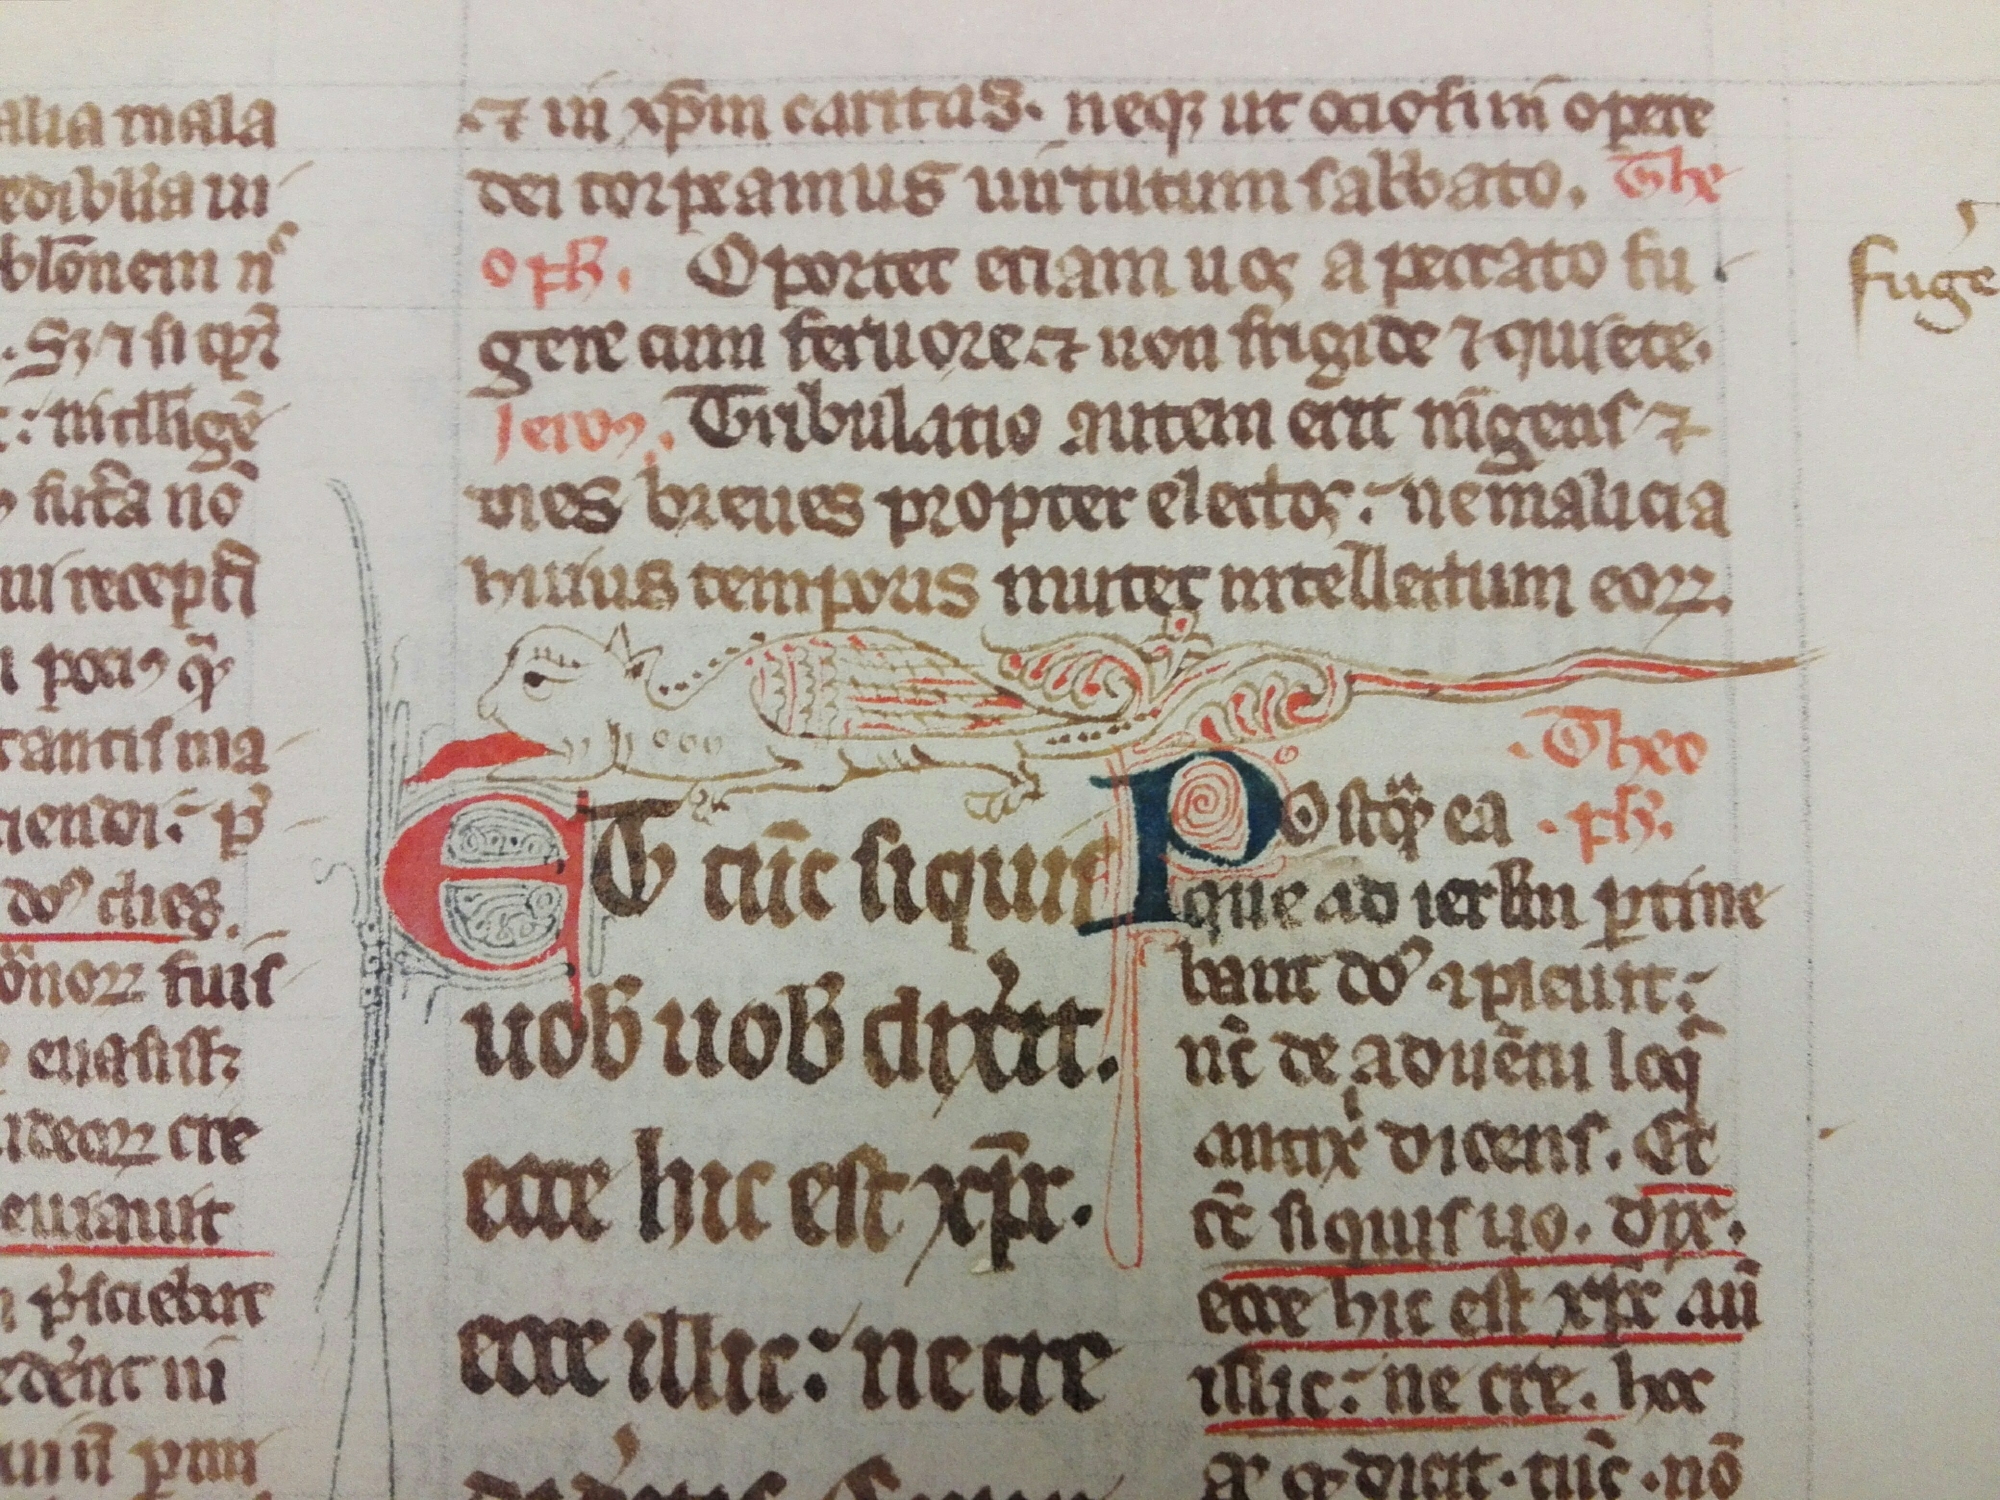 alia mala
edibilia ui
blōnem n
. Sꝫ ⁊ si
: intllīgē
furta nō
ui recep
pocius
tantis ma
ciendi: p̄
dos dies.
fuis
euasiss
ideoꝝ cre
eurauit
p̄sciebat
edēnt in
⁊ in xp̄m caritas. neqꝫ ut ociosi in opere
dei torpeamus uirtutum sabbato. The
oph̄. Oportet eciam uos a peccato fu
gere cum feruore ⁊ non frigide ⁊ quiete.
Jeroꝰ. Tribulatio autem erit īgens ⁊
dies breues propter electos: ne malicia
huius temporis mutet intellectum eoꝝ.
fuge
ET tūc siquis
uob̄ uob̄ dixīt.
ecce hic est xp̄c.
ecce illic: ne cre
Theo
ph̄.
Postq̄ ea
que ad ierl̄m ꝑtine
bant dos
nc̄ de aduētu loq̄
antix̄ dicens. Et
tc̄ siquis uo. dix̄.
ecce hic est xp̄c au̅
illic: ne cre. hoc
dicit. tūc. nō